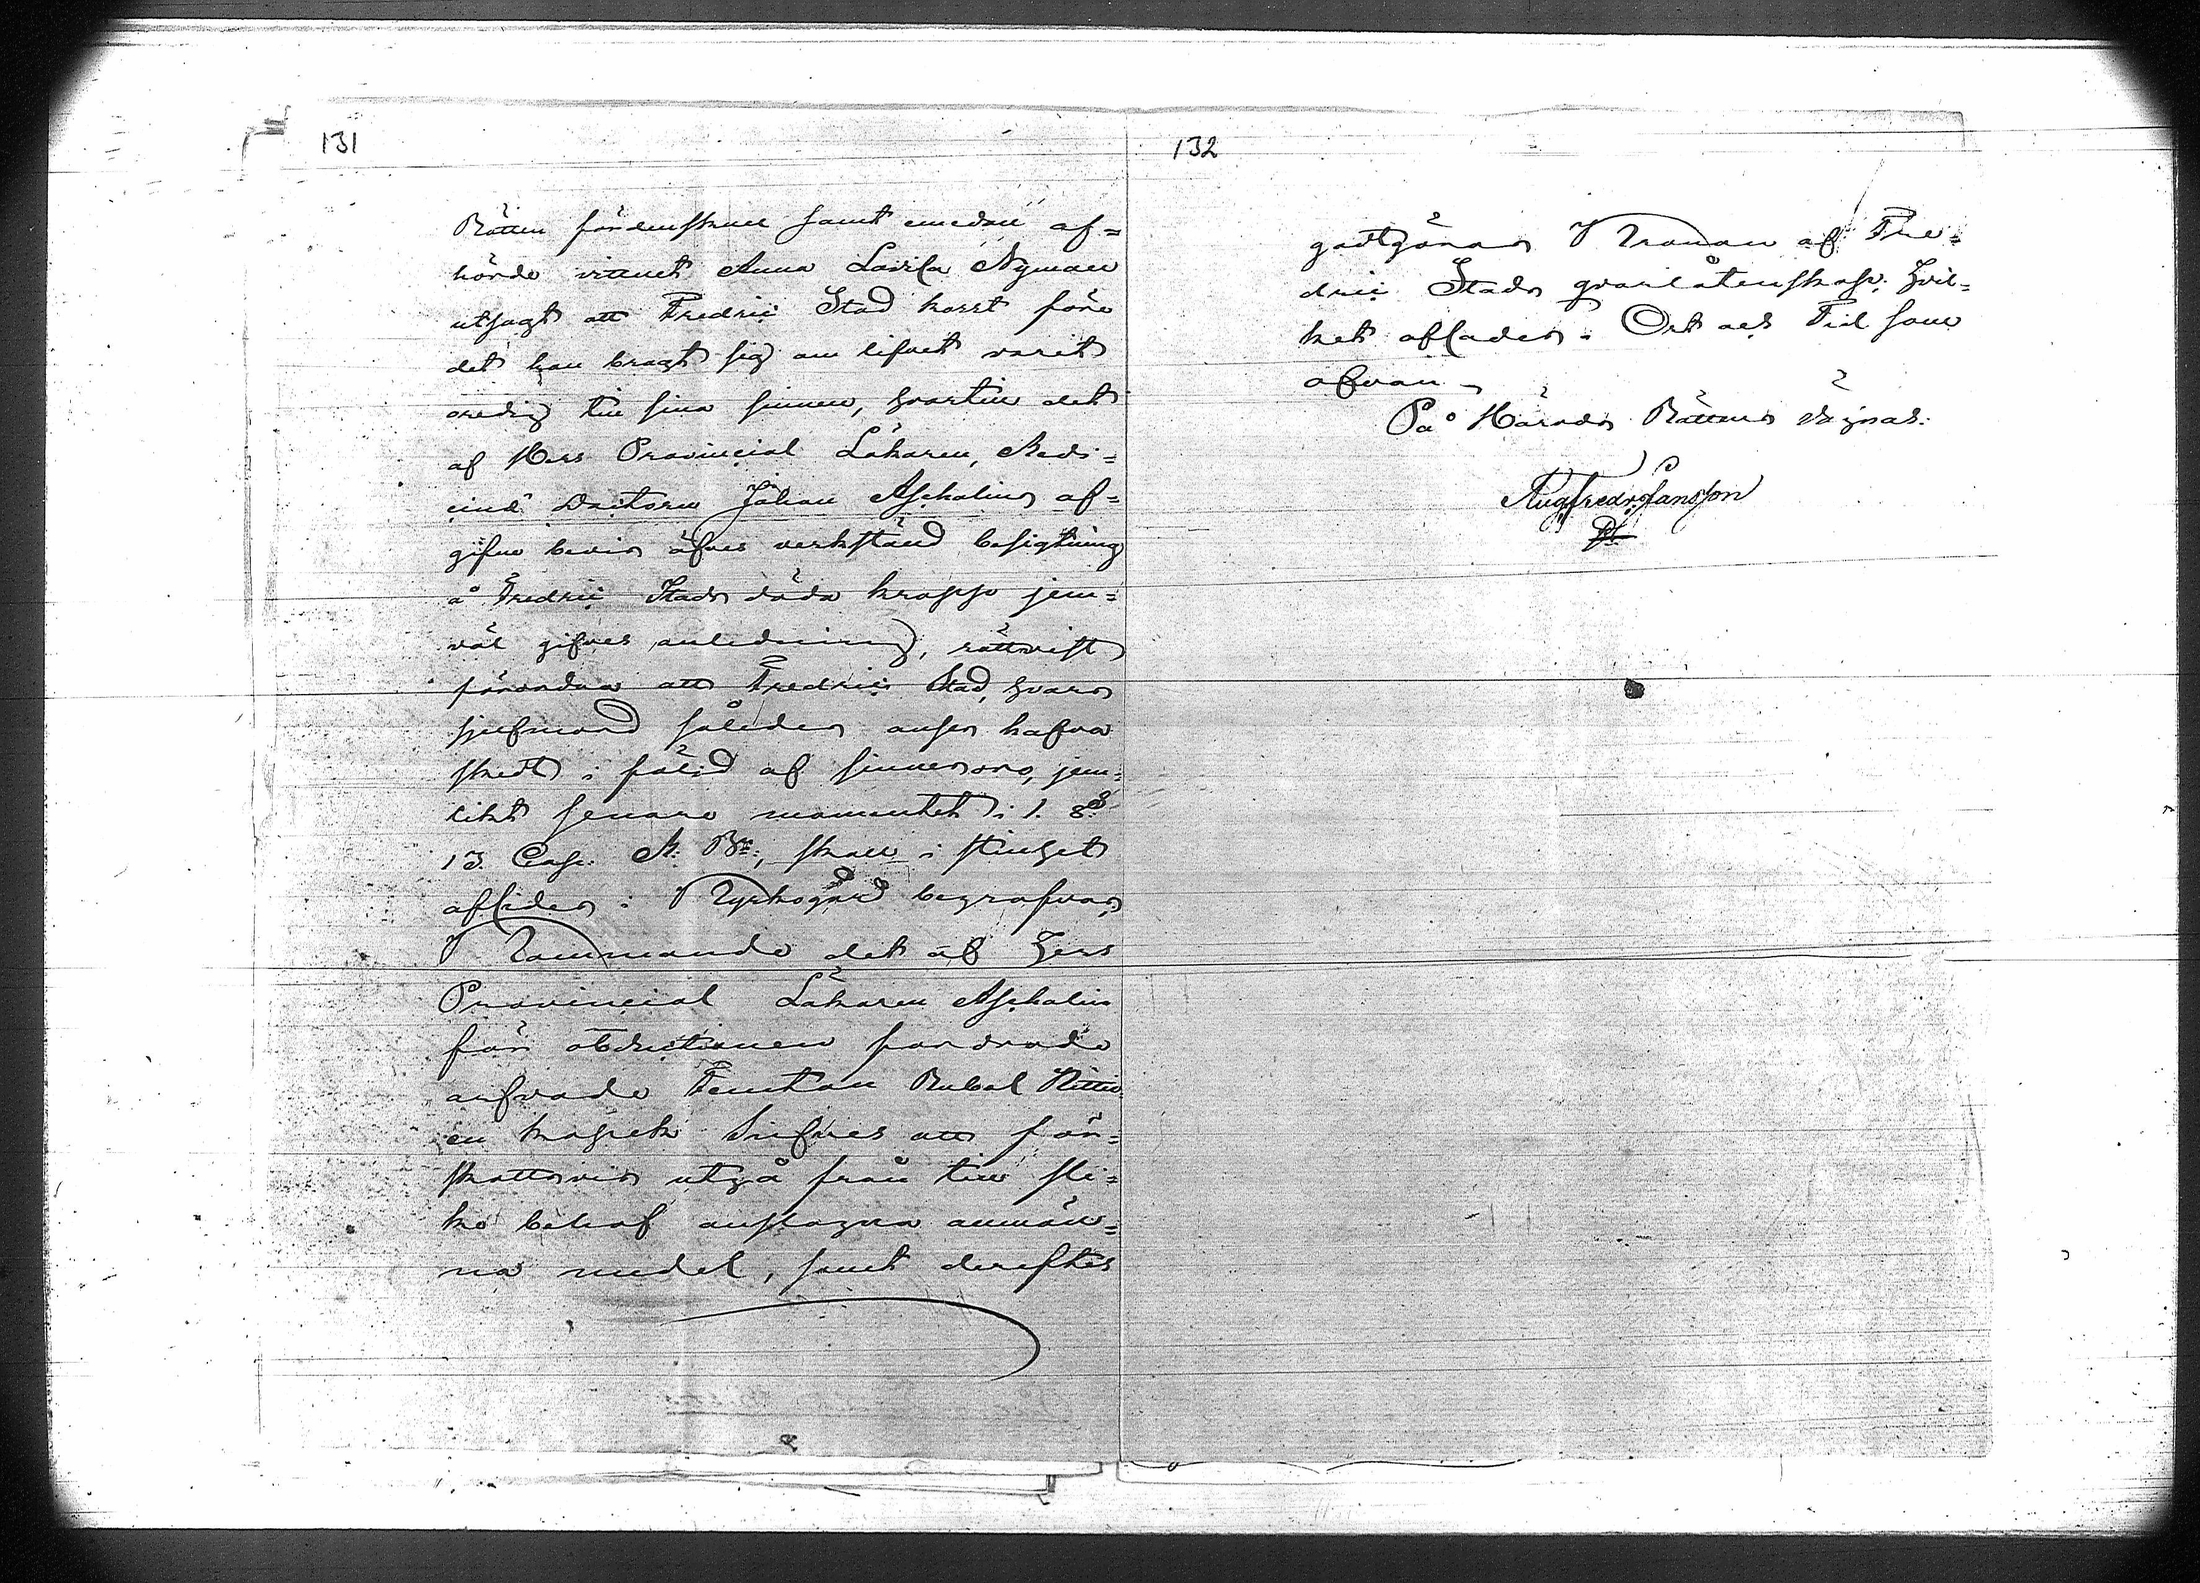 131
Rätten fördenskull samt emedan af=
hörde vittnet Anna Lovisa Nyman
utsagt att Fredric Stad kort före
det han bragt sig om lifvet varit
oredig till sina sinnen, hvartill det
af Herr Provincial Läkaren, Medi=
cinæ Doctorn Johan Aschalins af=
gifne bevis öfver verkställd besigtning
å Fredric Stads döda kropp jem=
väl gifver anledning, rättvist
pröfvar att Fredric Stad, hvars
sjelfmord således anses hafva
skedt i följd af sinnesoro, jem=
likt senare momentet i 1. §
13 Cap. M. B., skall i stillhet
aflides i Kyrkogård begrafvas
Kommande det af Herr
Provincial Läkaren Aschalin
för obductionen fordrade
arfvode Femton Rubel Nittio
en kopek Silfver att för=
skottsvis utgå från till sli=
ka behof anslagna allmän=
na medel, samt derefter
132
godtgöras Kronan af Fre=
dric Stads qvarlåtenskap. Hvil=
ket afsades. Ort och Tid som
ofvan
På Härads Rättens vägnar:
Aug. Fredr. Jansson